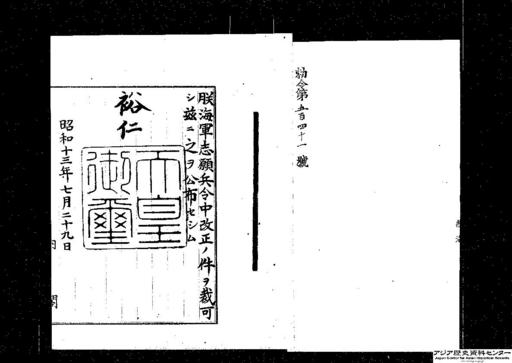 勅令第五百四十一號
朕海軍志願兵令中改正ノ件ヲ裁可
シ茲ニ之ヲ公布セシム
裕仁
天皇御璽
昭和十三年七月二十九日
内閣
アジア歴史資料センター
Japan Center for Asian Historical Records